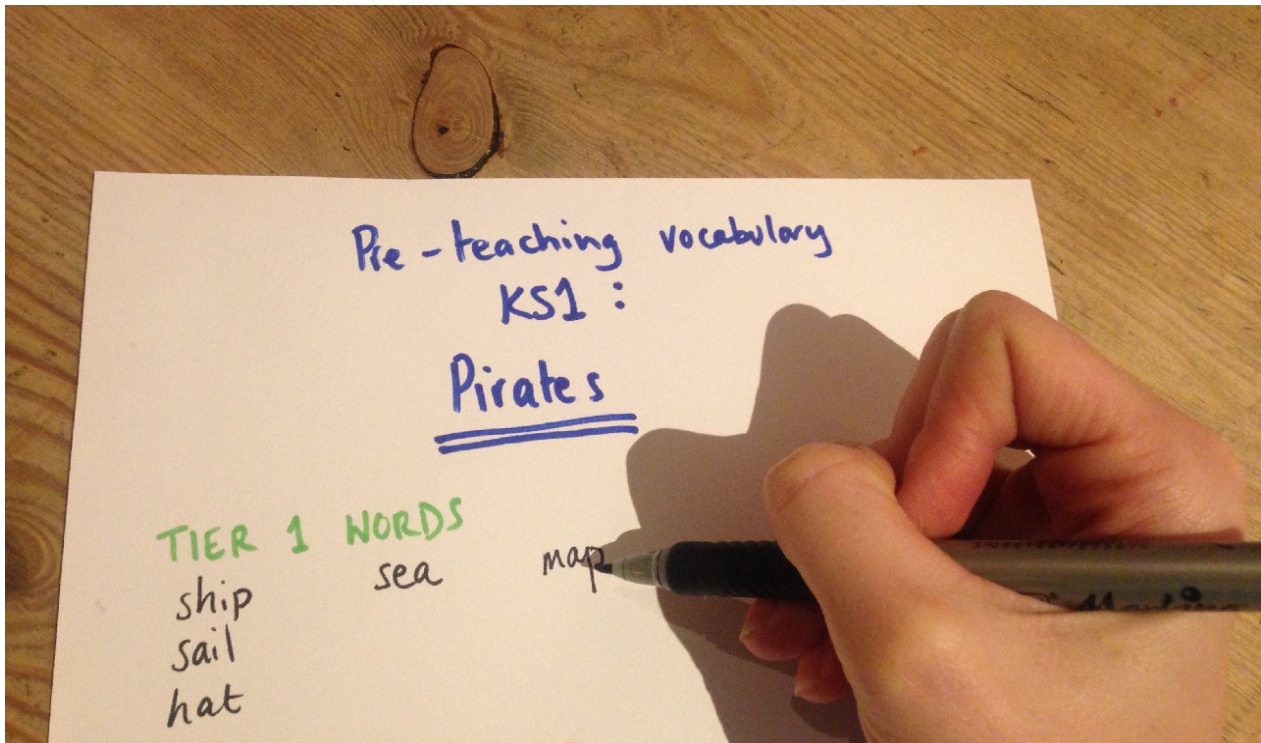 Pre-teaching vocabulary
KS1 :
Pirates
TIER 1 WORDS
ship sea map
sail
hat